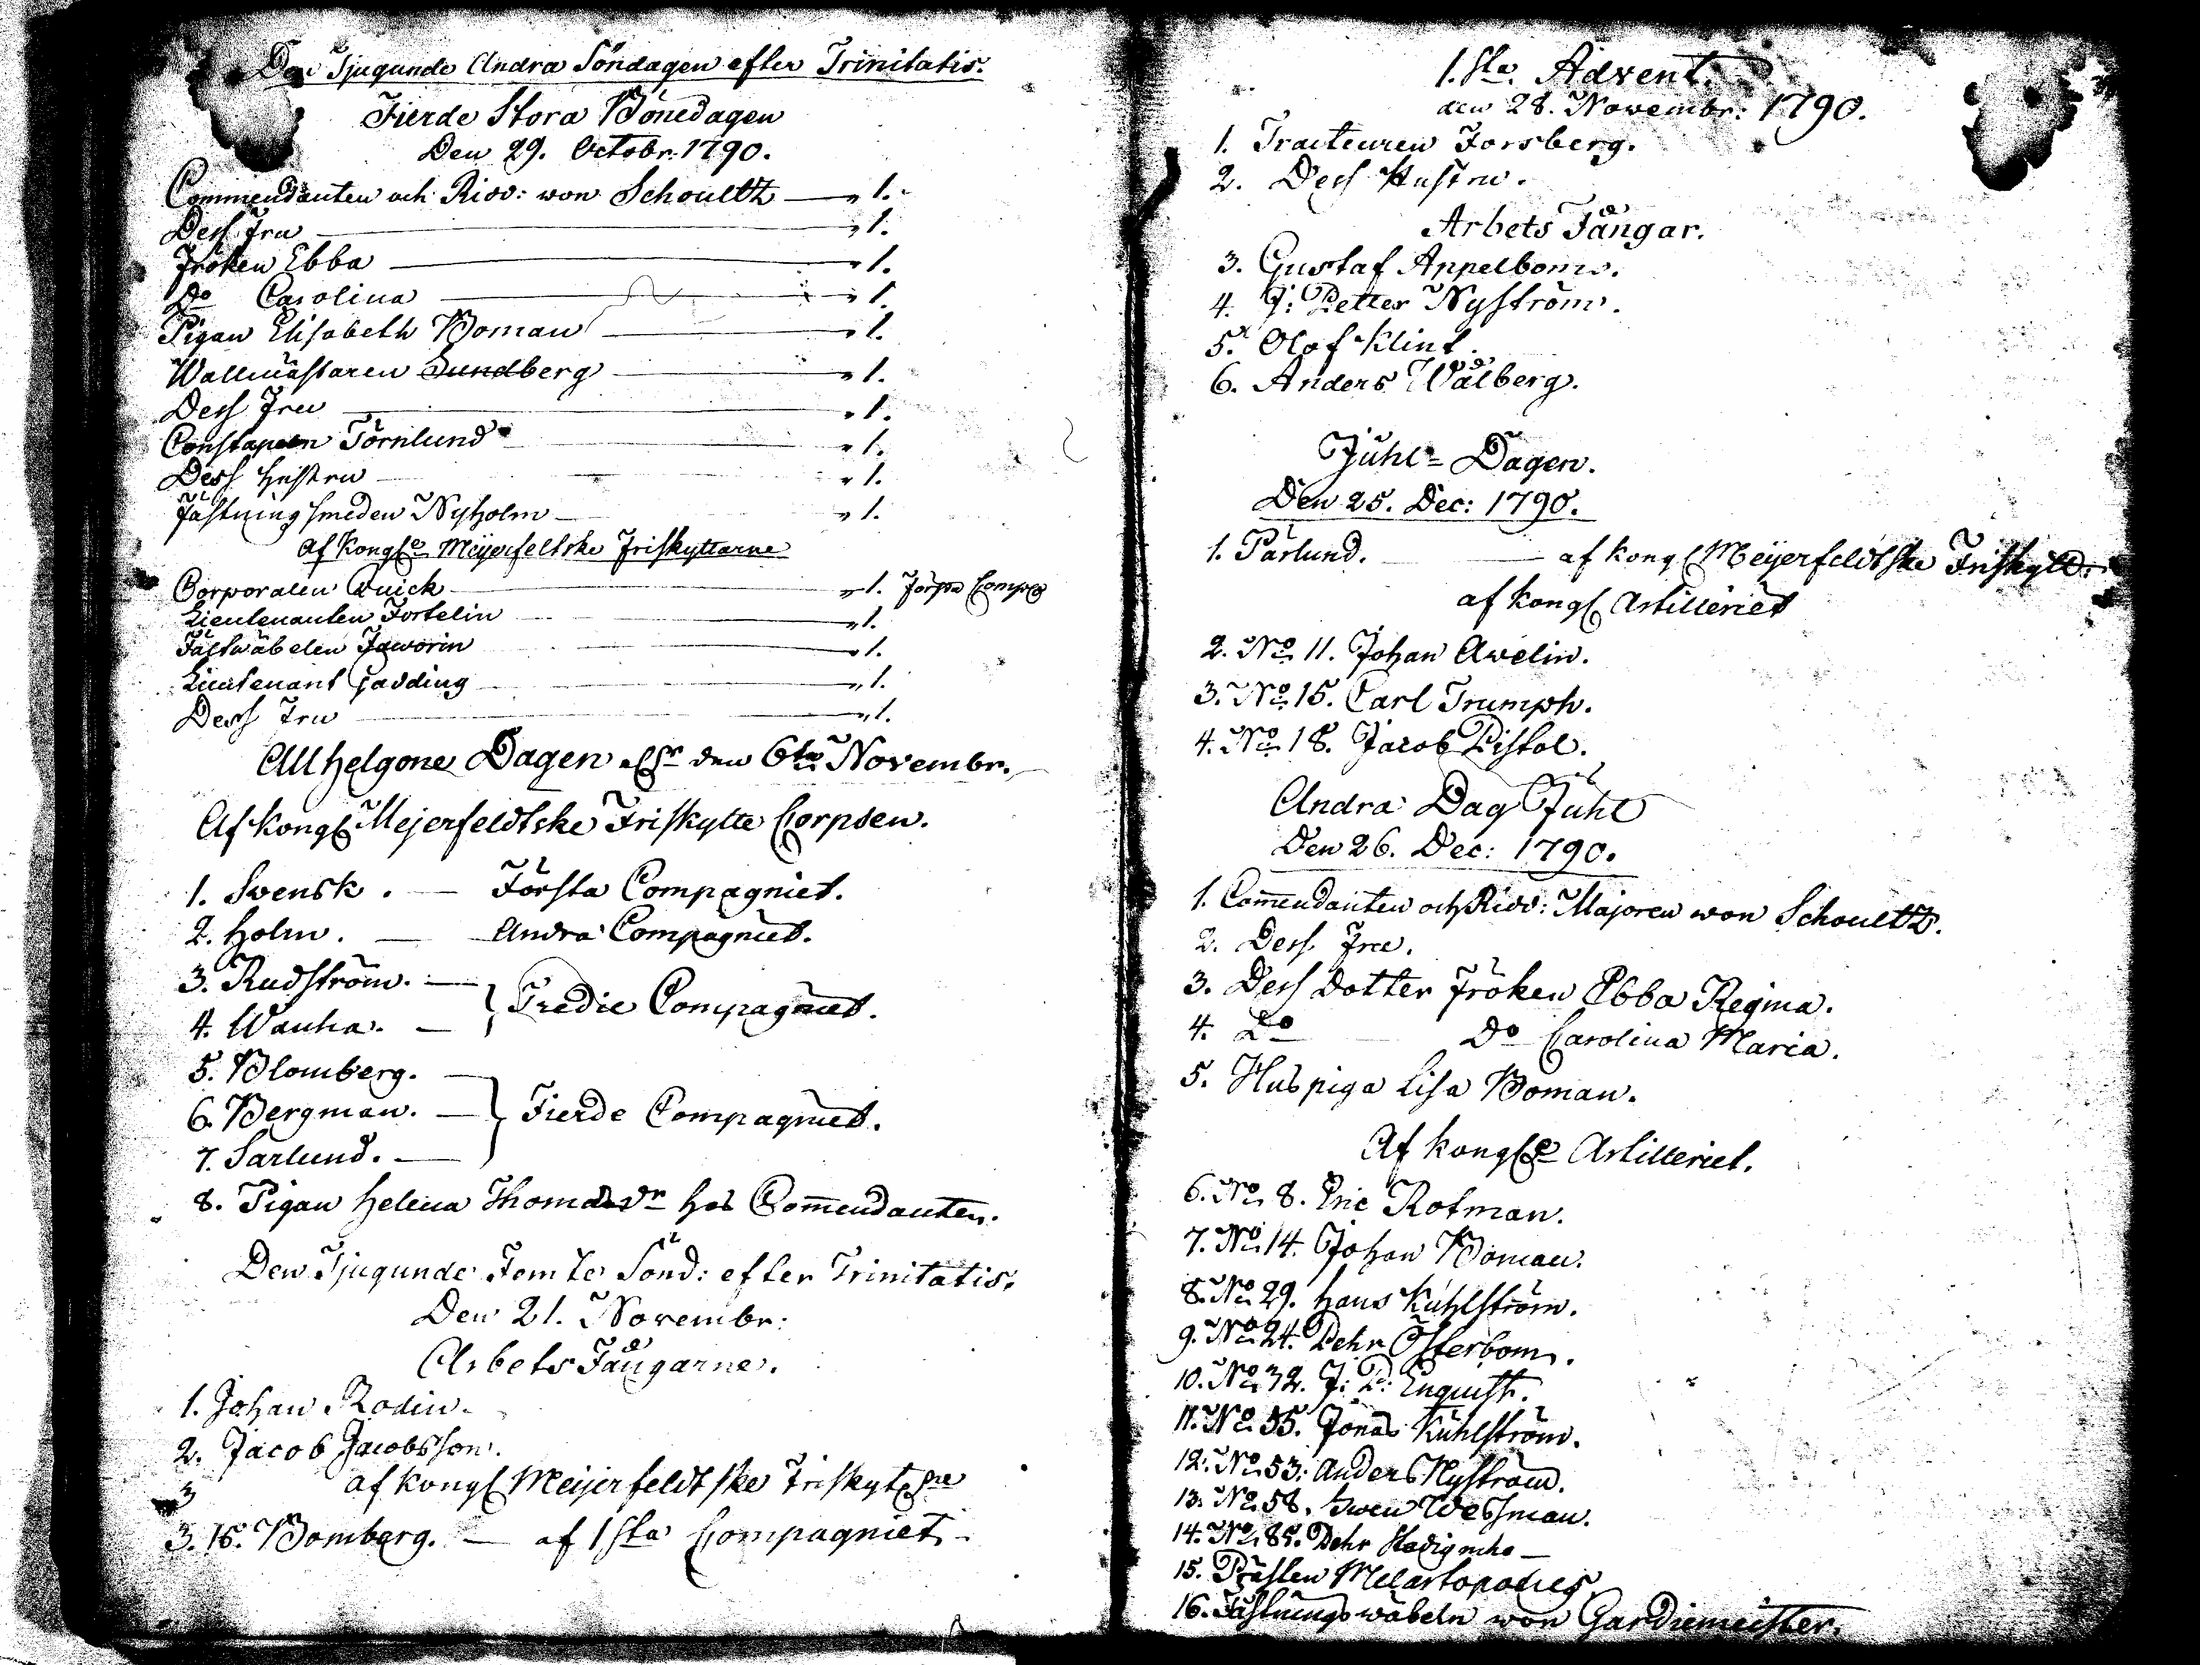 Den Tjugunde Andra Söndagen efter Trinitatis.
Fierde Stora Bönedagen
Den 29. Octobr: 1790.
Commendanten och Ridd: von Schoultz — " 1.
Dess Fru — " 1.
Fröken Ebba — " 1.
Do Carolina — " 1.
Pigan Elisabeth Boman — " 1.
Wallmästaren Sundberg — " 1.
Dess Fru — " 1.
Constapeln Törnlund — " 1.
Dess Hustru — " 1.
Fästningssmeden Nyholm — " 1.
Af Kongle Meijerfeltske Friskyttarne
Corporalen Quick — " 1. Förste Comp
Lieutenanten Fortelin — " 1.
Fältwäbelen Jaworin — " 1.
Lieutenant Gadding — " 1.
Dess Fru — " 1.
Allhelgone Dagen den 6te Novembr.
Af Kongl Mejerfeldtske Friskytte Corpsen.
1. Svensk. — Första Compagniet.
2. Holm. — Andra Compagniet.
3. Rudström. —
4. Wanha. — } Tredie Compagniet.
5. Blomberg. —
6. Bergman. — } Fierde Compagniet.
7. Sarlund. —
8. Pigan Helena Thomasdr hos Commendanten.
Den Tjugunde Femte Sönd: efter Trinitatis.
Den 21. Novembr:
Arbets Fångarne.
1. Johan Rodin.
2. Jacob Jacobsson.
af Kongl Meijerfeldtske Friskyt
3
3. 15. Bomberg. — af 1sta Compagniet
1.sta Advent.
den 28. Novembr: 1790.
1. Tracteuren Forsberg.
2. Dess Hustru.
Arbets Fångar.
3. Gustaf Appelbom.
4. J: Petter Nyström.
5. Olof Klint.
6. Anders Wålberg.
Juhl-Dagen.
Den 25. Dec: 1790.
1. Pärlund. — af Kongl Meijerfeldtske Friskytt:
af Kongl Artilleriet
2. No 11. Johan Awelin.
3. No 15. Carl Trumph.
4. No 18. Jacob Pistol.
Andra Dag Juhl
Den 26. Dec: 1790.
1. Commendanten och Ridd: Majoren von Schoultz.
2. Dess Fru.
3. Dess Dotter Fröken Ebba Regina.
4. Do Do Carolina Maria.
5. Huspiga Lisa Boman.
Af Kongle Artilleriet.
6. No 8. Eric Rotman.
7. No 14. Johan Boman.
8. No 29. Hans Kuhlström.
9. No 24. Pehr Österbom.
10. No 32. J: P: Enquist.
11. No 35. Jonas Kuhlström.
12. No 53. Anders Nyström.
13. No 58. Swen Wessman.
14. No 85. Pehr
15. Prästen
16. Fästningswäbeln von Gardiemeister.